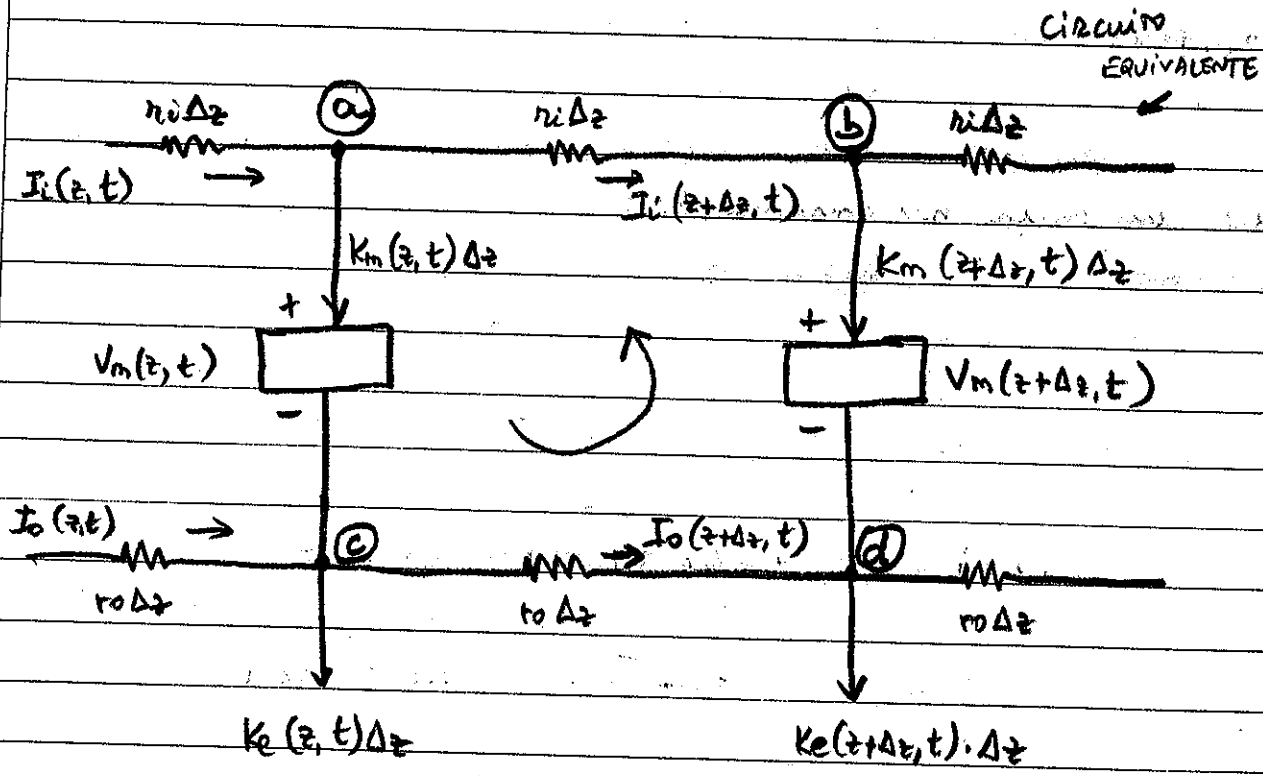 CIRCUITO
EQUIVALENTE
riΔz
a
riΔz
b
riΔz
Ii(z,t)
Ii(z+Δz,t)
Km(z,t)Δz
Km(z+Δz,t)Δz
+
+
Vm(z,t)
Vm(z+Δz,t)
-
-
Io(z,t)
c
Io(z+Δz,t)
d
roΔz
roΔz
roΔz
Ke(z,t)Δz
Ke(z+Δz,t).Δz